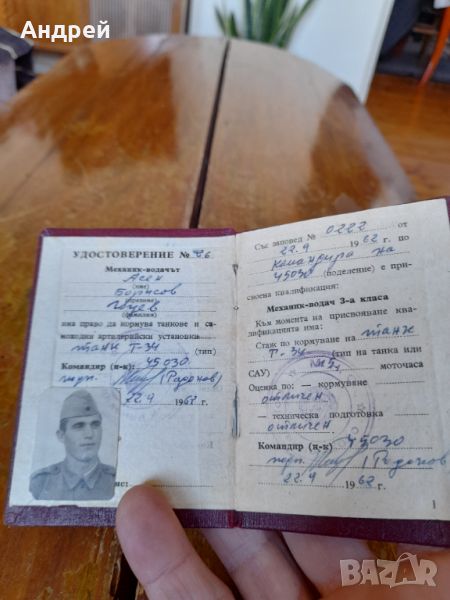 Андрей
УДОСТОВЕРЕНИЕ № 26
Механик-водачът
Асен
(име)
Борисов
(презиме)
(фамилия)
има право да кормува танкове и са-
моходни артилерийски установки
танк Т-34 (тип)
Командир (н-к): 45030
подп. (Радонов)
22.9 1962 г.
Със заповед № 0222 от
22.9 1962 г. по
командира на
45030 (поделение) е при-
своена квалификация:
Механик-водач 3-а класа
Към момента на присвояване ква-
лификацията има:
Стаж по кормуване на танк
Т-34 (тип на танка или
САУ) моточаса
Оценка по: — кормуване
отличен
— техническа подготовка
отличен
Командир (н-к) 45030
подп. (Радонов)
22.9 1962 г.
1
BAZAR